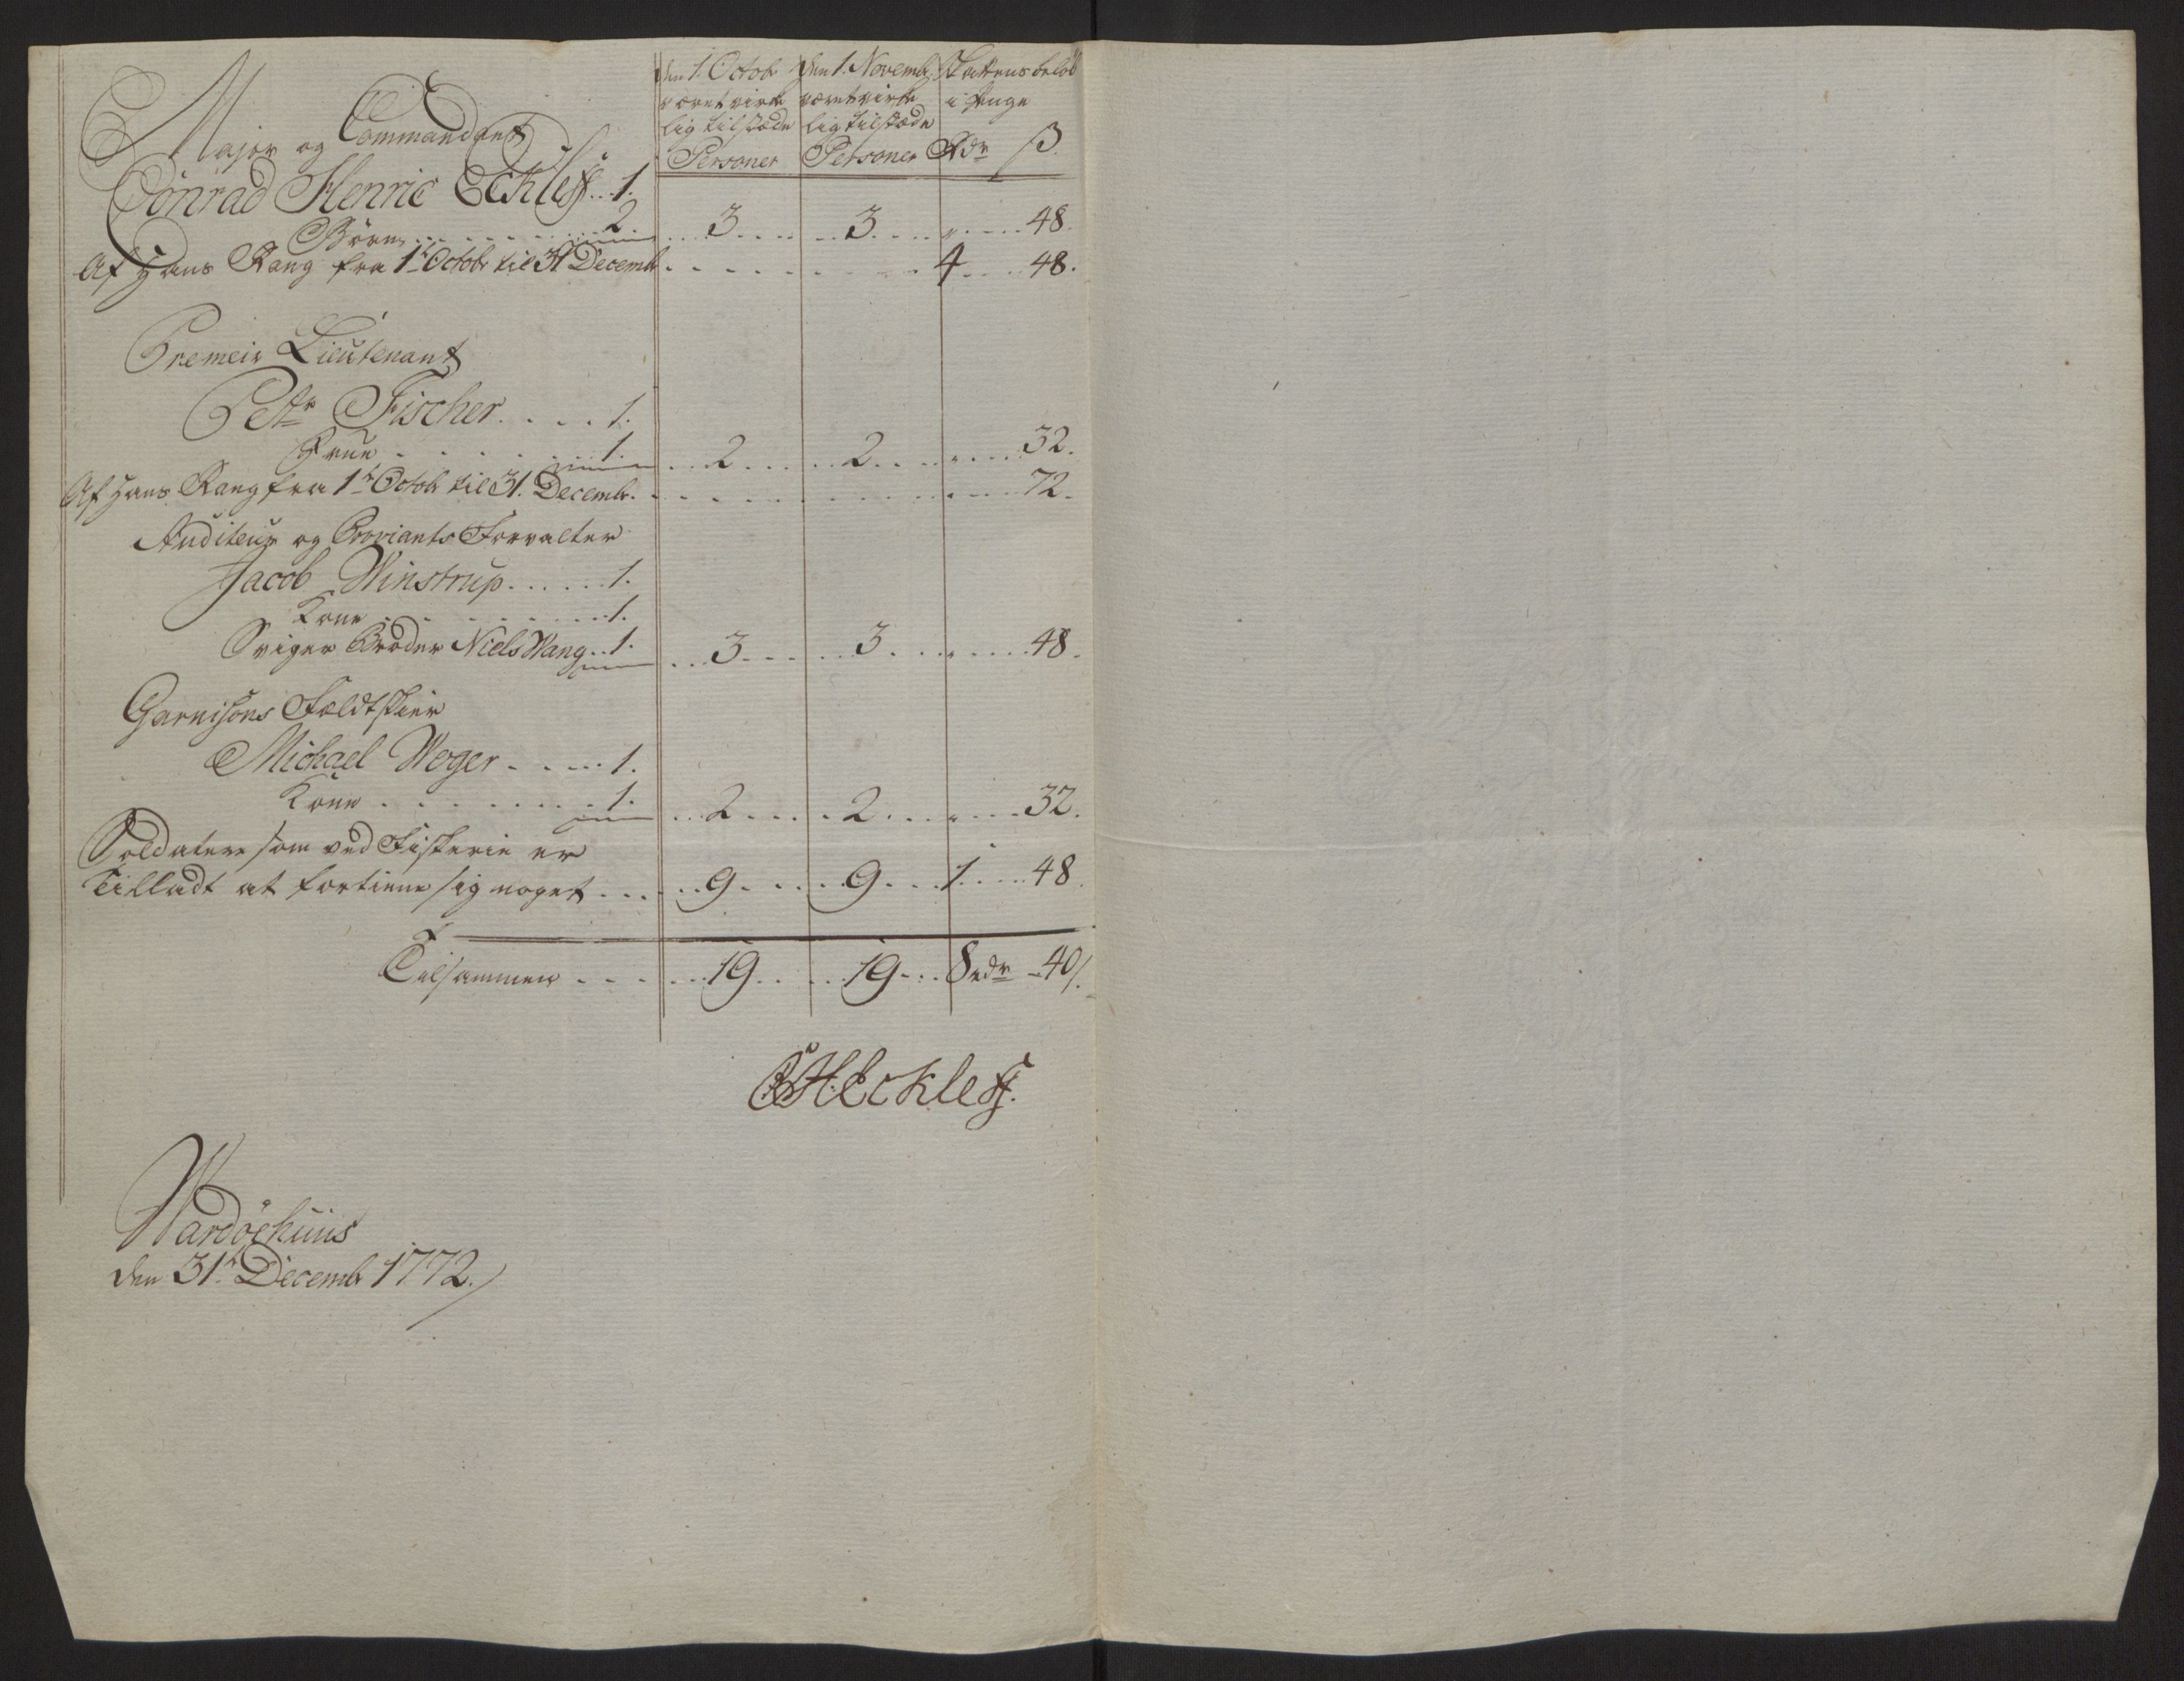 den 1. Octob. været virke lig tilstæde Personer
den 1. Novembr. været virke lig tilstæde Personer
Skattens beløb i Penge Rdr ß.
Major og Commandant
Conrad Henric Eckleff . . 1.
Børn . . . . . . 2. . . 3 . . . . 3 . . . . 48.
Af Hans Rang fra 1te Octob. til 31 Decemb. . . . . 4 . . . 48.
Premeir Lieutenant
Petr Fischer . . . . 1.
Frue . . . . . 1. . . 2 . . . . 2 . . . . 32.
Af Hans Rang fra 1te Octob. til 31. Decembr. . . . . 72.
Auditeur og Proviants Forvalter
Jacob Winstrup . . . . . 1.
Kone . . . . . . . 1.
Sviger Broder Niels Wang . . 1. . . 3 . . . . 3 . . . . 48.
Garnisons Feldtskier
Michael Weger . . . . 1.
Kone . . . . . . . 1. . . 2 . . . . 2 . . . . 32.
Soldatere som ved Fiskerie er
Tilladt at fortiene sig noget . . . 9 . . . . 9 . . . 1 . . . 48.
Tilsammen . . . . 19 . . . . 19 . . . 8 rdr 40 ß.
CHEckleff.
Wardøehuus
den 31te Decembr 1772.